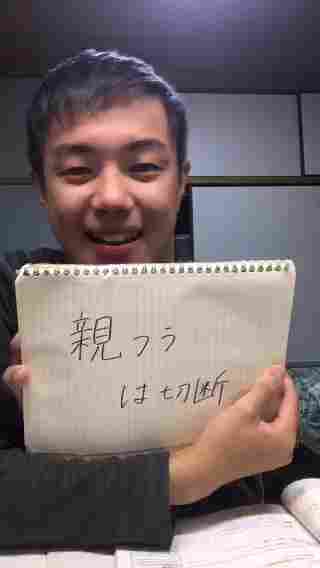 親フラ
は切断